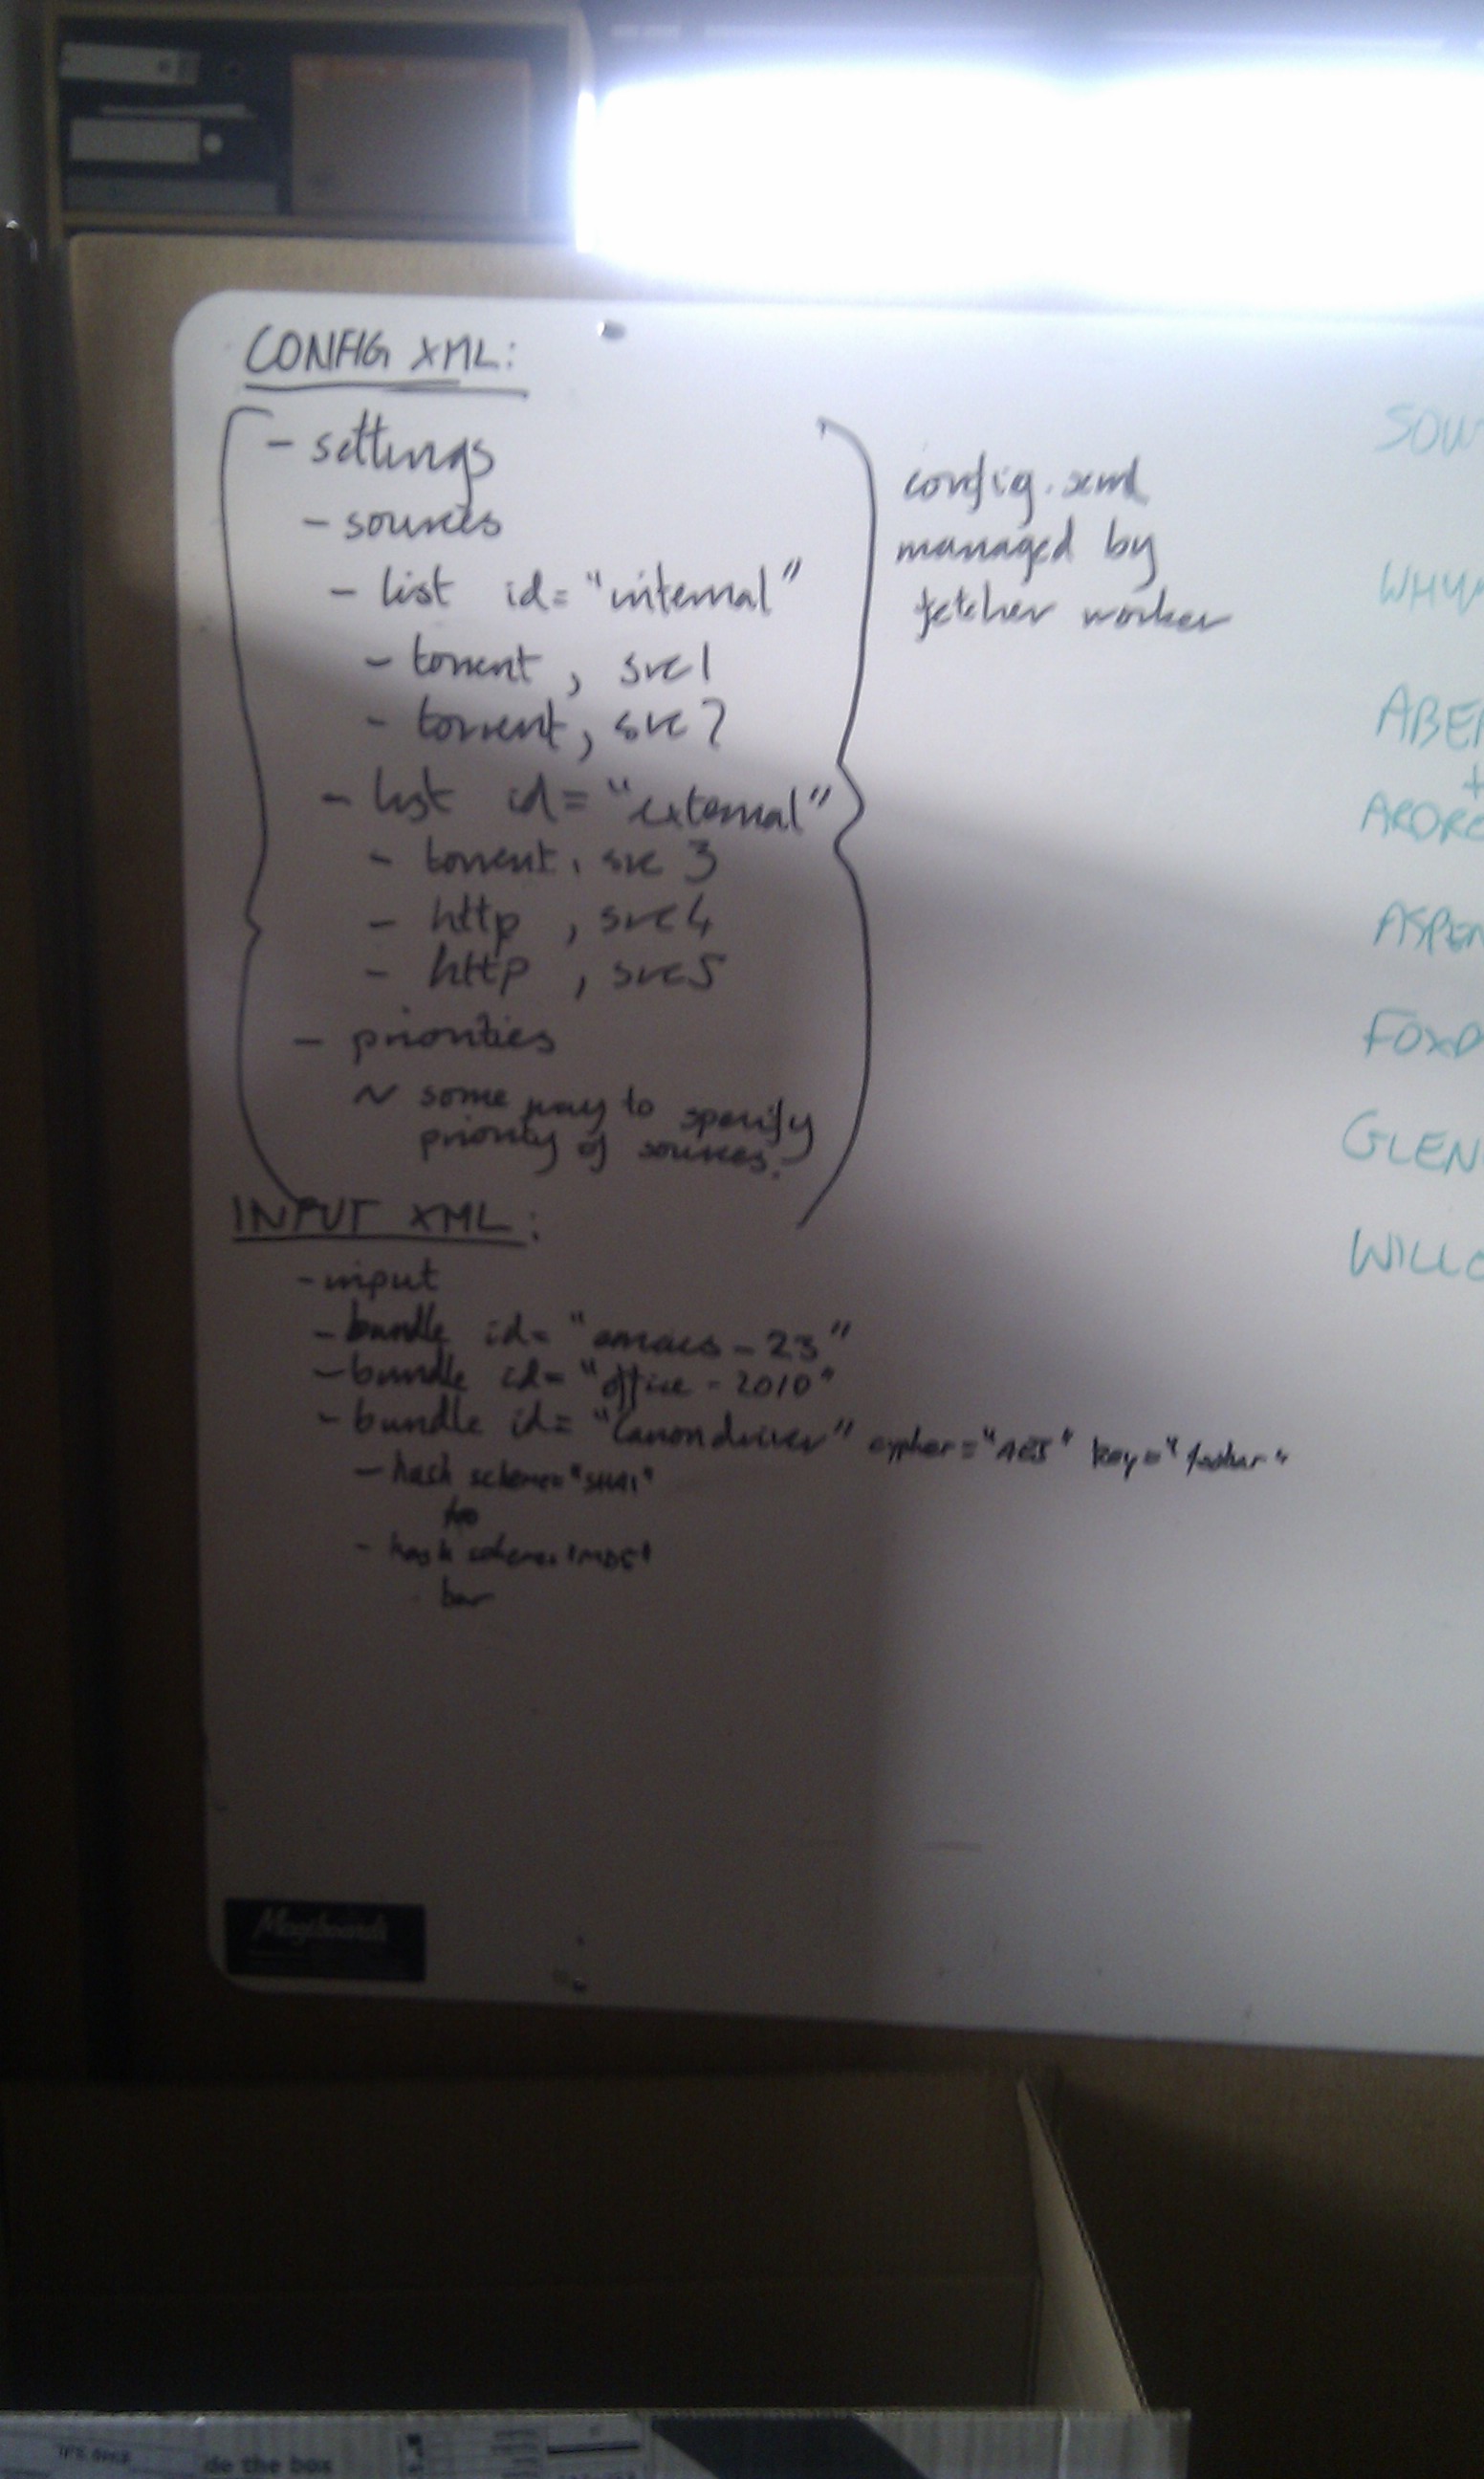 CONFIG XML:
- settings
- sources
- list id="internal"
- torrent, src1
- torrent, src2
- list id="external"
- torrent, src 3
- http, src4
- http, src5
- priorities
~ some way to specify
priority of sources.
config.xml
managed by
fetcher worker
INPUT XML:
- input
- bundle id="emacs-23"
- bundle id="office-2010"
- bundle id="Canondriver" cypher="AES" key="foobar"
- hash scheme="SHA1"
foo
- hash scheme="MD5"
bar
SOU
WHY
ABE
+
ASPEN
FOXD
GLEN
WILLO
Magiboards
do the box